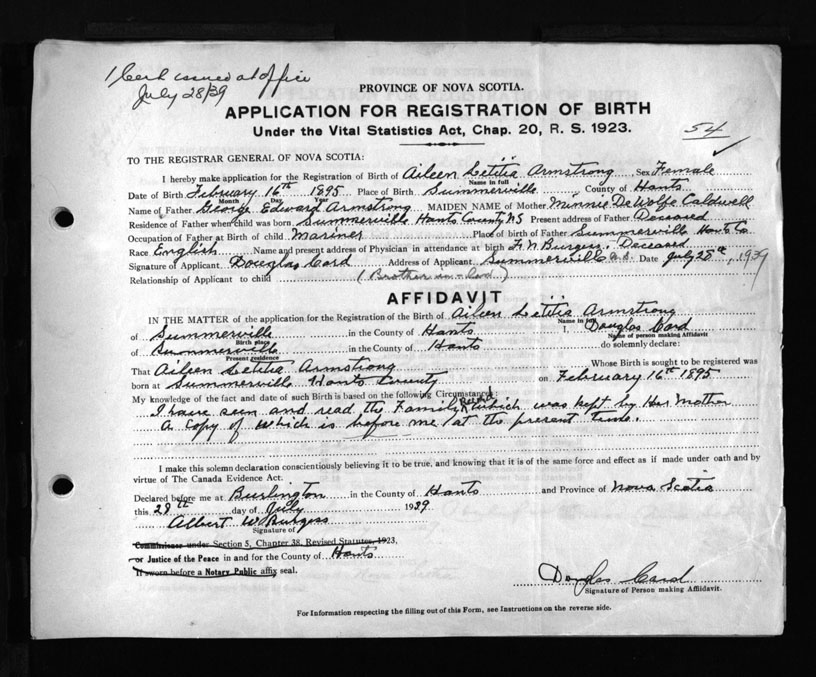 1 Cert issued at office
July 28/39
PROVINCE OF NOVA SCOTIA.
APPLICATION FOR REGISTRATION OF BIRTH
Under the Vital Statistics Act, Chap. 20, R. S. 1923.
54
TO THE REGISTRAR GENERAL OF NOVA SCOTIA:
I hereby make application for the Registration of Birth of Aileen Letitia Armstrong Sex Female
Name in full
Date of Birth February 16th 1895 Place of Birth Summerville, County of Hants
Month Day Year
Name of Father George Edward Armstrong MAIDEN NAME of Mother Minnie DeWolfe Caldwell
Residence of Father when child was born Summerville Hants County NS Present address of Father Deceased
Occupation of Father at Birth of child Mariner Place of birth of Father Summerville Hants Co
Race English Name and present address of Physician in attendance at birth F. N. Burgess. Deceased
Signature of Applicant Douglas Card Address of Applicant Summerville N.S. Date July 28th, 1939
Relationship of Applicant to child (Brother-in-law)
AFFIDAVIT
IN THE MATTER of the application for the Registration of the Birth of Aileen Letitia Armstrong
Name in full
of Summerville in the County of Hants I, Douglas Card
Birth place Name of person making Affidavit
of Summerville in the County of Hants do solemnly declare:
Present residence
That Aileen Letitia Armstrong Whose Birth is sought to be registered was
born at Summerville Hants County on February 16th 1895
My knowledge of the fact and date of such Birth is based on the following Circumstances:
I have seen and read the Family Record which was kept by Her Mother
A Copy of which is before me at the present time.
I make this solemn declaration conscientiously believing it to be true, and knowing that it is of the same force and effect as if made under oath and by
virtue of The Canada Evidence Act.
Declared before me at Burlington in the County of Hants and Province of Nova Scotia
this 28th day of July 1939
Albert W Burgess
Signature of
Commissioner under Section 5, Chapter 38, Revised Statutes, 1923,
or Justice of the Peace in and for the County of Hants
If sworn before a Notary Public affix seal.
Douglas Card
Signature of Person making Affidavit.
For Information respecting the filling out of this Form, see Instructions on the reverse side.